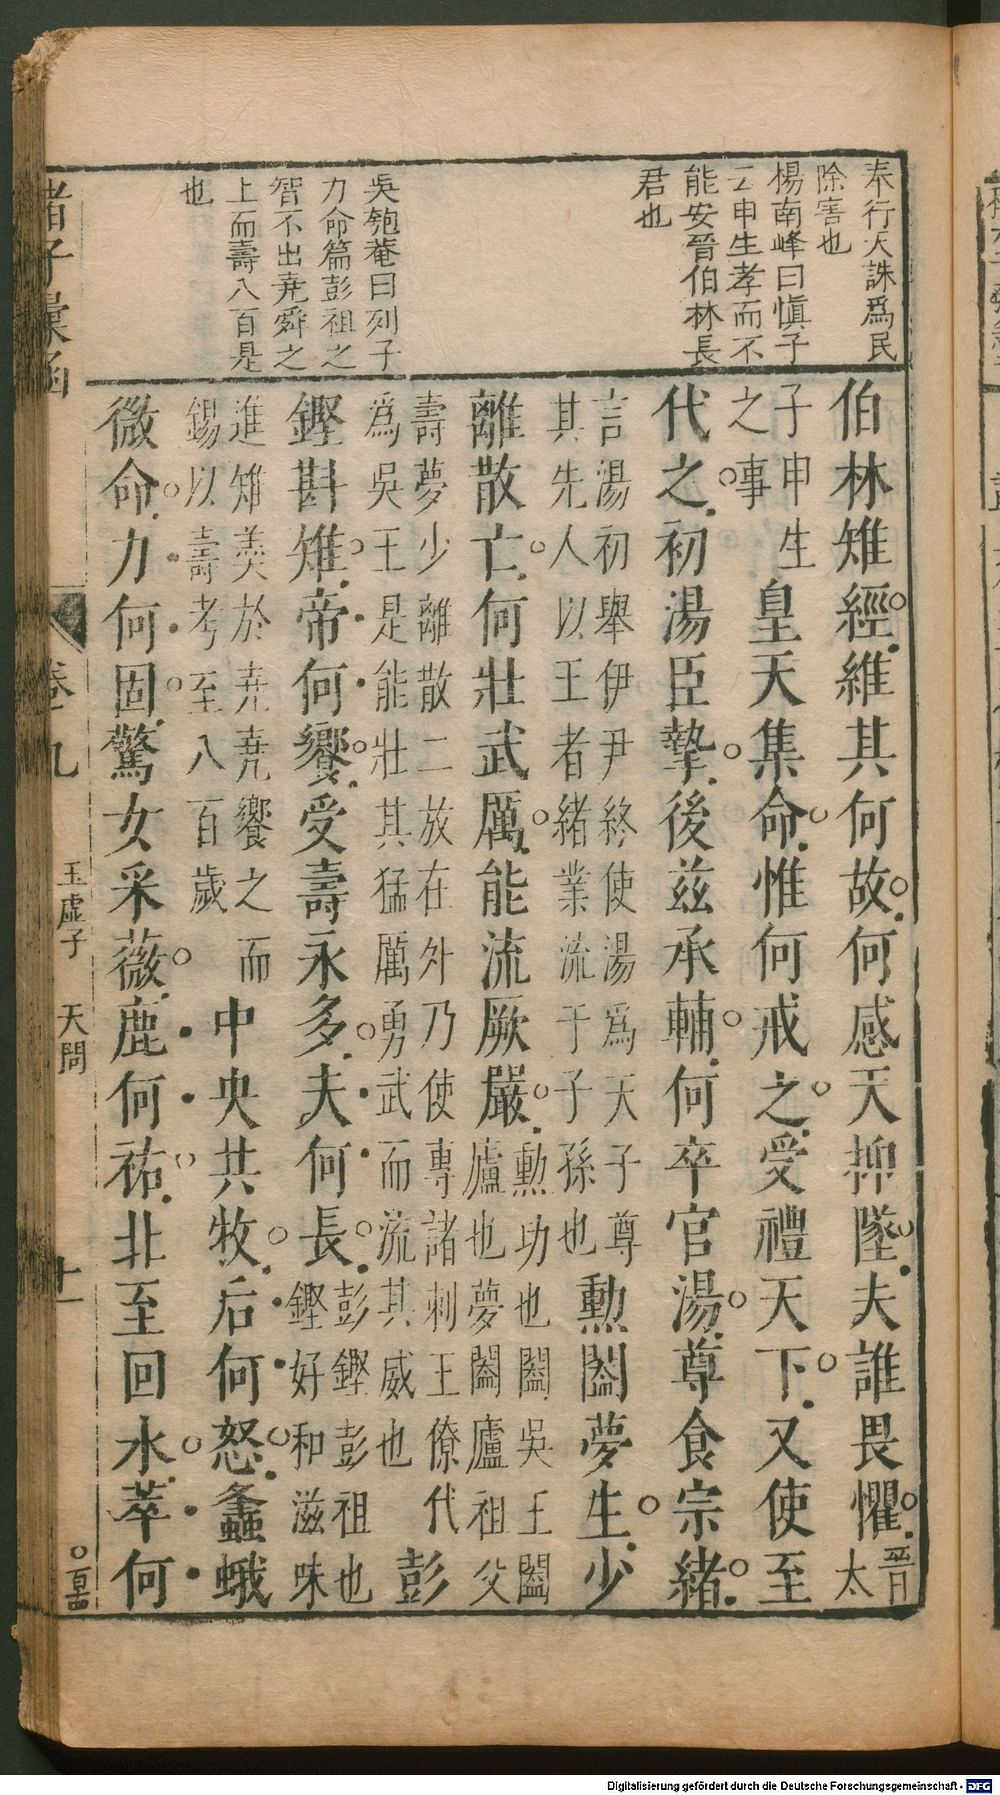 奉行天誅爲民
除害也
楊南峰曰愼子
云申生孝而不
能安晉伯林長
君也
吳匏菴曰列子
力命篇彭祖之
智不出堯舜之
上而壽八百是
也
伯林雉經維其何故何感天抑墜夫誰畏懼晉太
子申生之事皇天集命惟何戒之受禮天下又使至
代之初湯臣摯後茲承輔何卒官湯尊食宗緒
言湯初舉伊尹終使湯爲天子尊其先人以王者緒業流于子孫也勳闔夢生少
離散亡何壯武厲能流厥嚴勳功也闔吳王闔廬也夢闔廬祖父
壽夢少離散二放在外乃使專諸刺王僚代爲吳王是能壯其猛厲勇武而流其威也彭
鏗斟雉帝何饗受壽永多夫何長彭鏗彭祖也鏗好和滋味
進雉羹於堯堯饗之而錫以壽考至八百歲中央共牧后何怒螽蛾
微命力何固驚女采薇鹿何祐北至回水萃何
諸子彙函
卷九
玉虛子 天問
十一
Digitalisierung gefördert durch die Deutsche Forschungsgemeinschaft - DFG